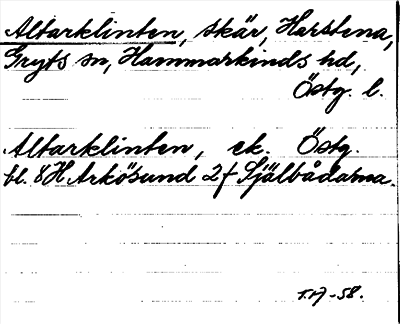 Altarklinten, skär, Harstena,
Gryts sn, Hammarkinds hd,
Östg. l.
Altarklinten, ek. Östg.
bl. 8H Arkösund 2f Själbådarna.
T.H-58.